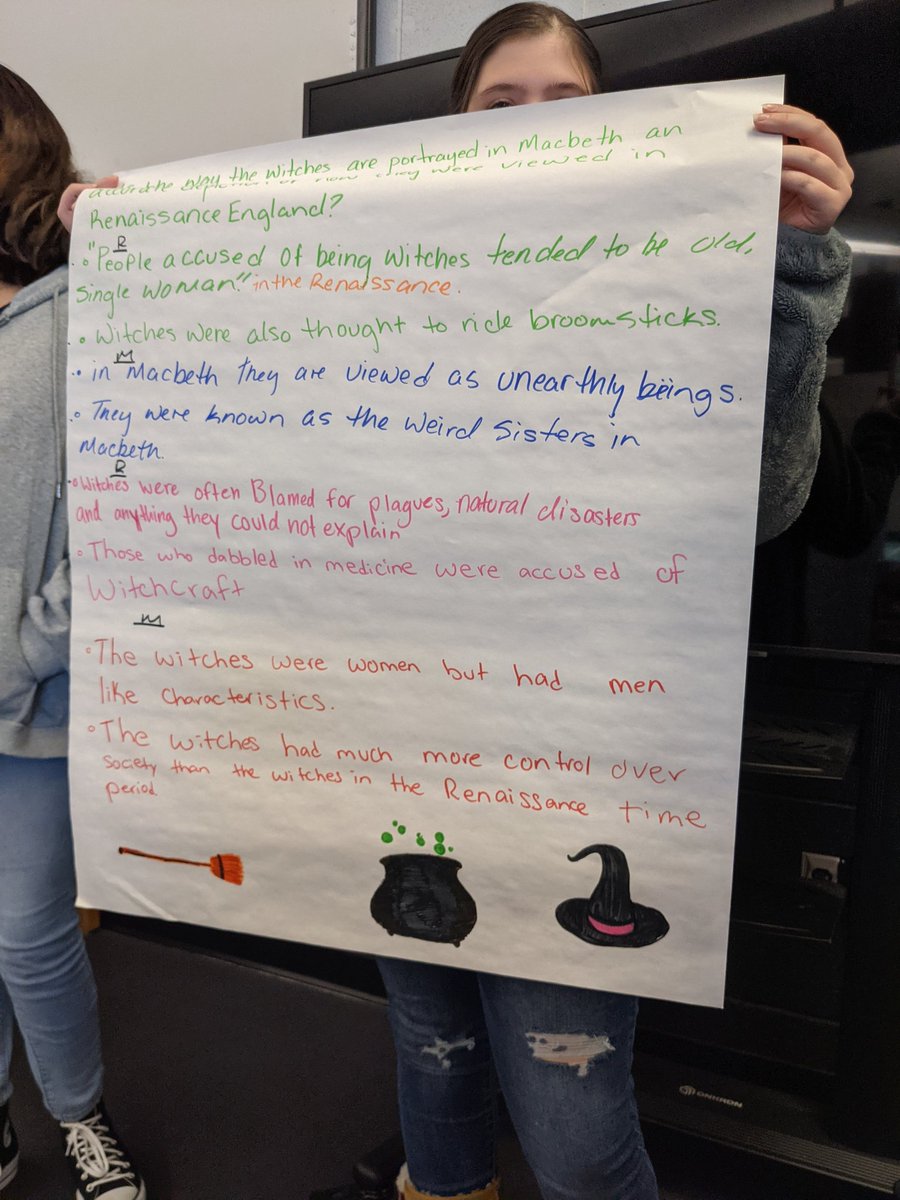 the way the witches are portrayed in Macbeth an
how they were viewed in
Renaissance England?
R
• "People accused of being witches tended to be old,
single woman." in the Renaissance.
• Witches were also thought to ride broomsticks.
M
• in Macbeth they are viewed as unearthly beings.
• They were known as the Weird Sisters in
Macbeth.
R
• Witches were often Blamed for plagues, natural disasters
and anything they could not explain
• Those who dabbled in medicine were accused of
Witchcraft
M
• The witches were women but had men
like characteristics.
• The witches had much more control over
society than the witches in the Renaissance time
period.
ONKRON